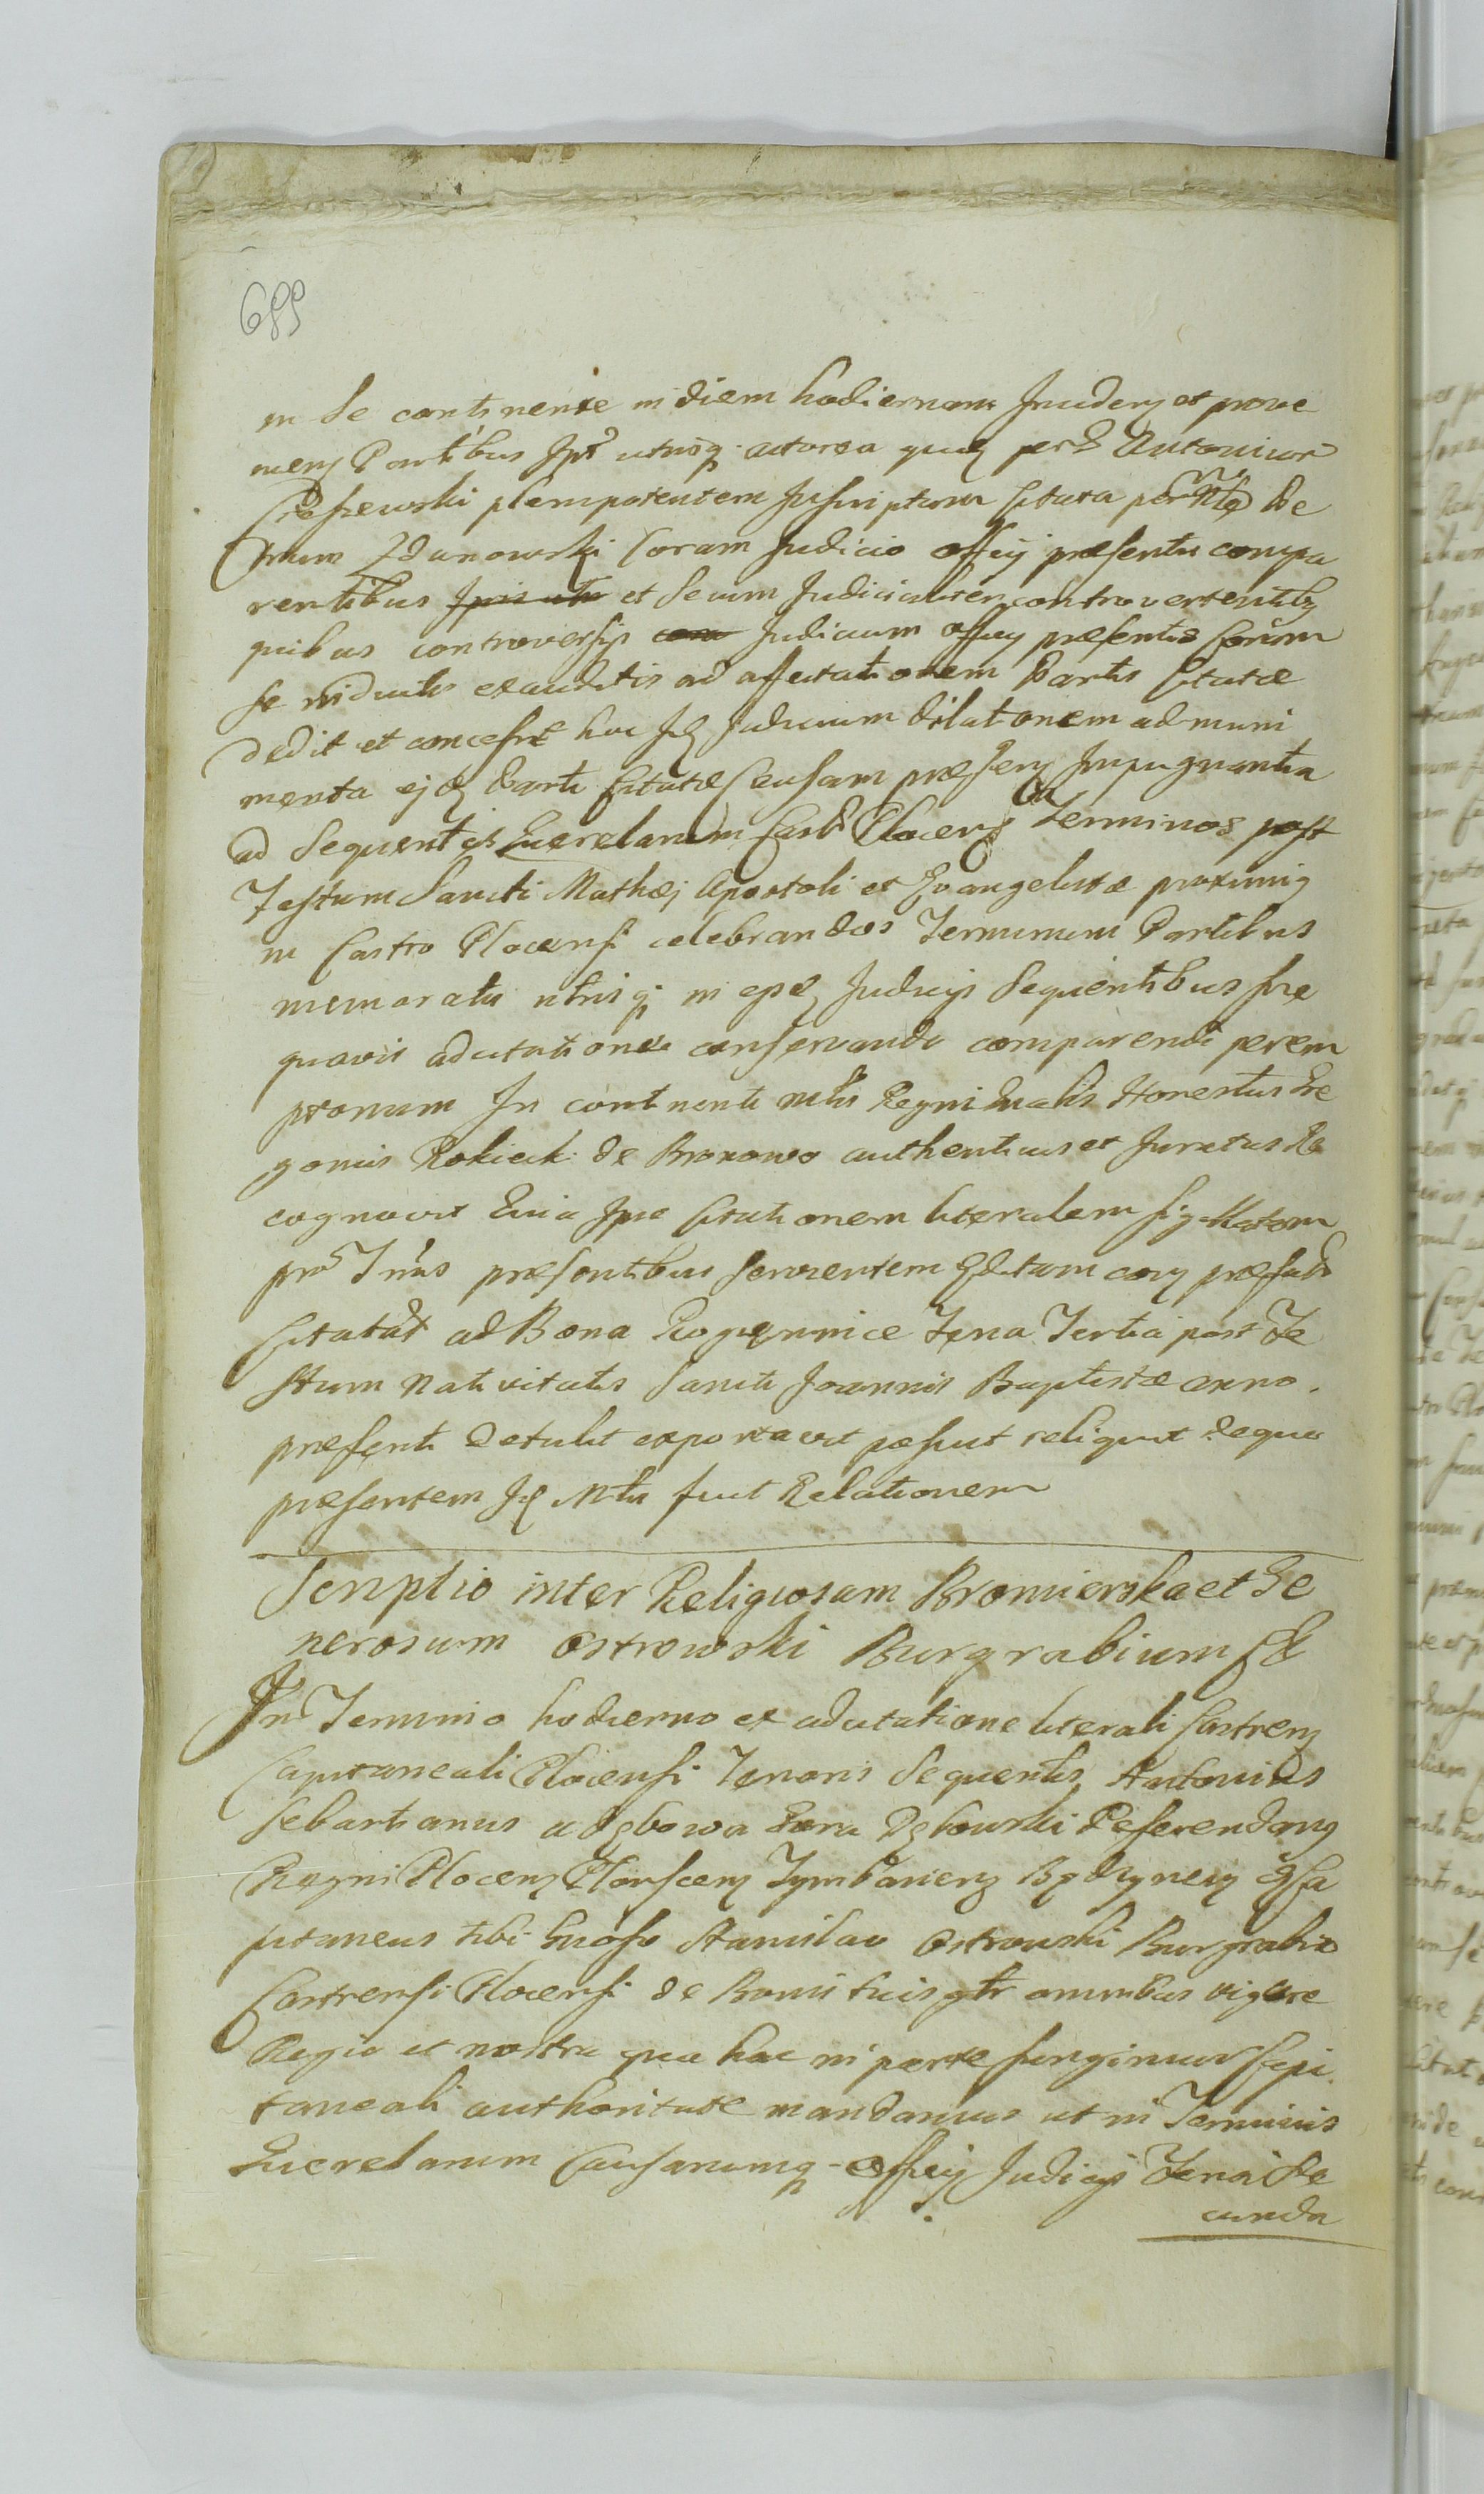 699
in se continente in diem hodiernam Inciden et prove
nien Partibus Ipis utrisq actorea quid per Antonium
Ciessewski plenipotentem Inscriptum Citata per Pe
trum Zdunowski Coram Judicio officij præsentis compa
rentibus et secum Judicialiter controvertentibg
quibus controversijs Judicium officij præsentis
se exauditis ad affectationem Partis Citatæ
dedit et concessit hac Judicium dilationem ad muni
menta ejd Parti Citatæ Causam præsen Impugnantia
ad Sequentes Querelarum Castr Plocen Terminos post
Festum Sancti Mathæj Apostoli et Evangelistæ proximig
in Castro Plocensi celebrandos Terminum Partibus
memoratis utrisq in Judicijs Sequentibus sine
quavis adcitatione conservando comparendi perem
ptorium In continenti mtlis Regni Gnalis Honestus Gre
gorius Rokicik de Boxowo authenticus et Juratus Re
cognovit Quia Ipse Citationem literalem
pro Tnis præsentibus servientem Editam præfato
Citatar ad Bona Rogienice Feria Tertia post Fe
stum Nativitatis Sancti Joannis Baptistæ anno
præsenti Detulit exportavit posuit reliquit dequa
præsentem Mtlis fecit Relationem
Scriptio inter Religiosam Bromierska et Ge
nerosum Ostrowski Burgrabium
In Termino hodierno ex adcitatione literali Castren
Capitaneali Plocensi Tenoris Sequentis Antonius
Sebastianus a Dębowa Gora Dębowski Referendarig
Regni Plocen Plonscen Tymbarien Bydgynen Ca
pitaneus tibi Gnoso Stanislao Ostrowski Burgrabio
Castrensi Plocensi de Bonis tuis gtr omnibus vigore
Regia et nostra qua hac in parte fungimur Capi
taneali authoritate mandamus ut in Terminis
Querelarum Causarumq Officij Judicijs Feria Se
cunda